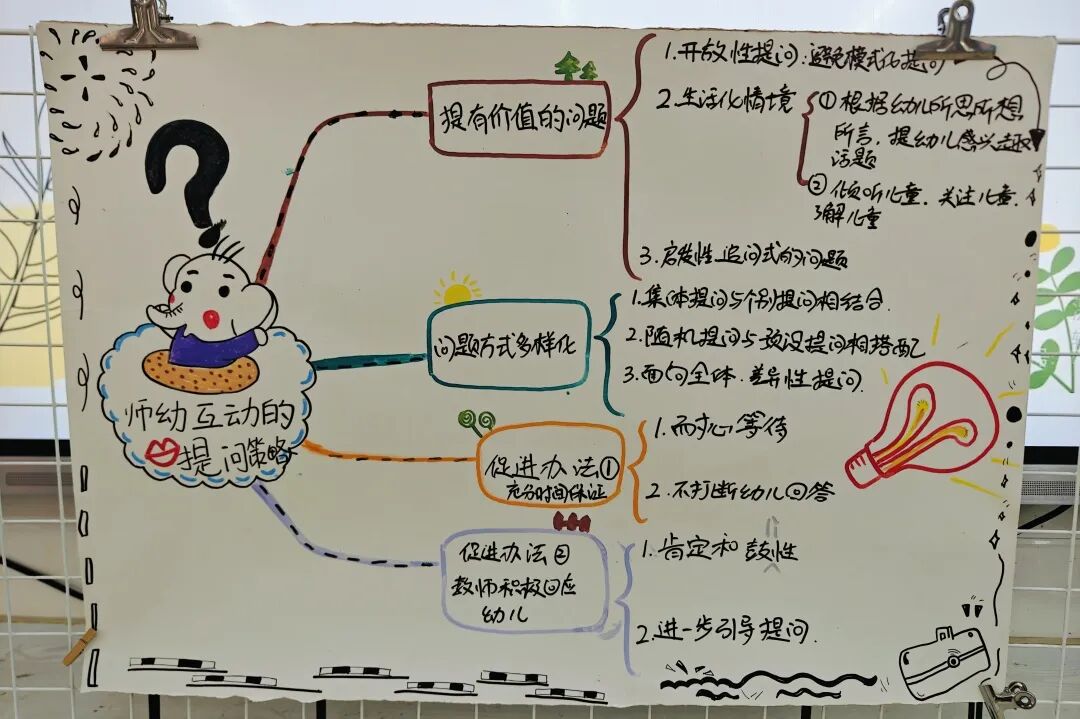 师幼互动的
提问策略
提有价值的问题
1.开放性提问:避免模式化提问
2.生活化情境
①根据幼儿所思所想
所言,提幼儿感兴趣
话题
②倾听儿童.关注儿童.
了解儿童
3.启发性追问式的问题
问题方式多样化
1.集体提问与个别提问相结合.
2.随机提问与预设提问相搭配
3.面向全体.差异性提问.
促进办法①
充分时间保证
1.耐心等待
2.不打断幼儿回答
促进办法②
教师积极回应
幼儿
1.肯定和鼓性
2.进一步引导提问.